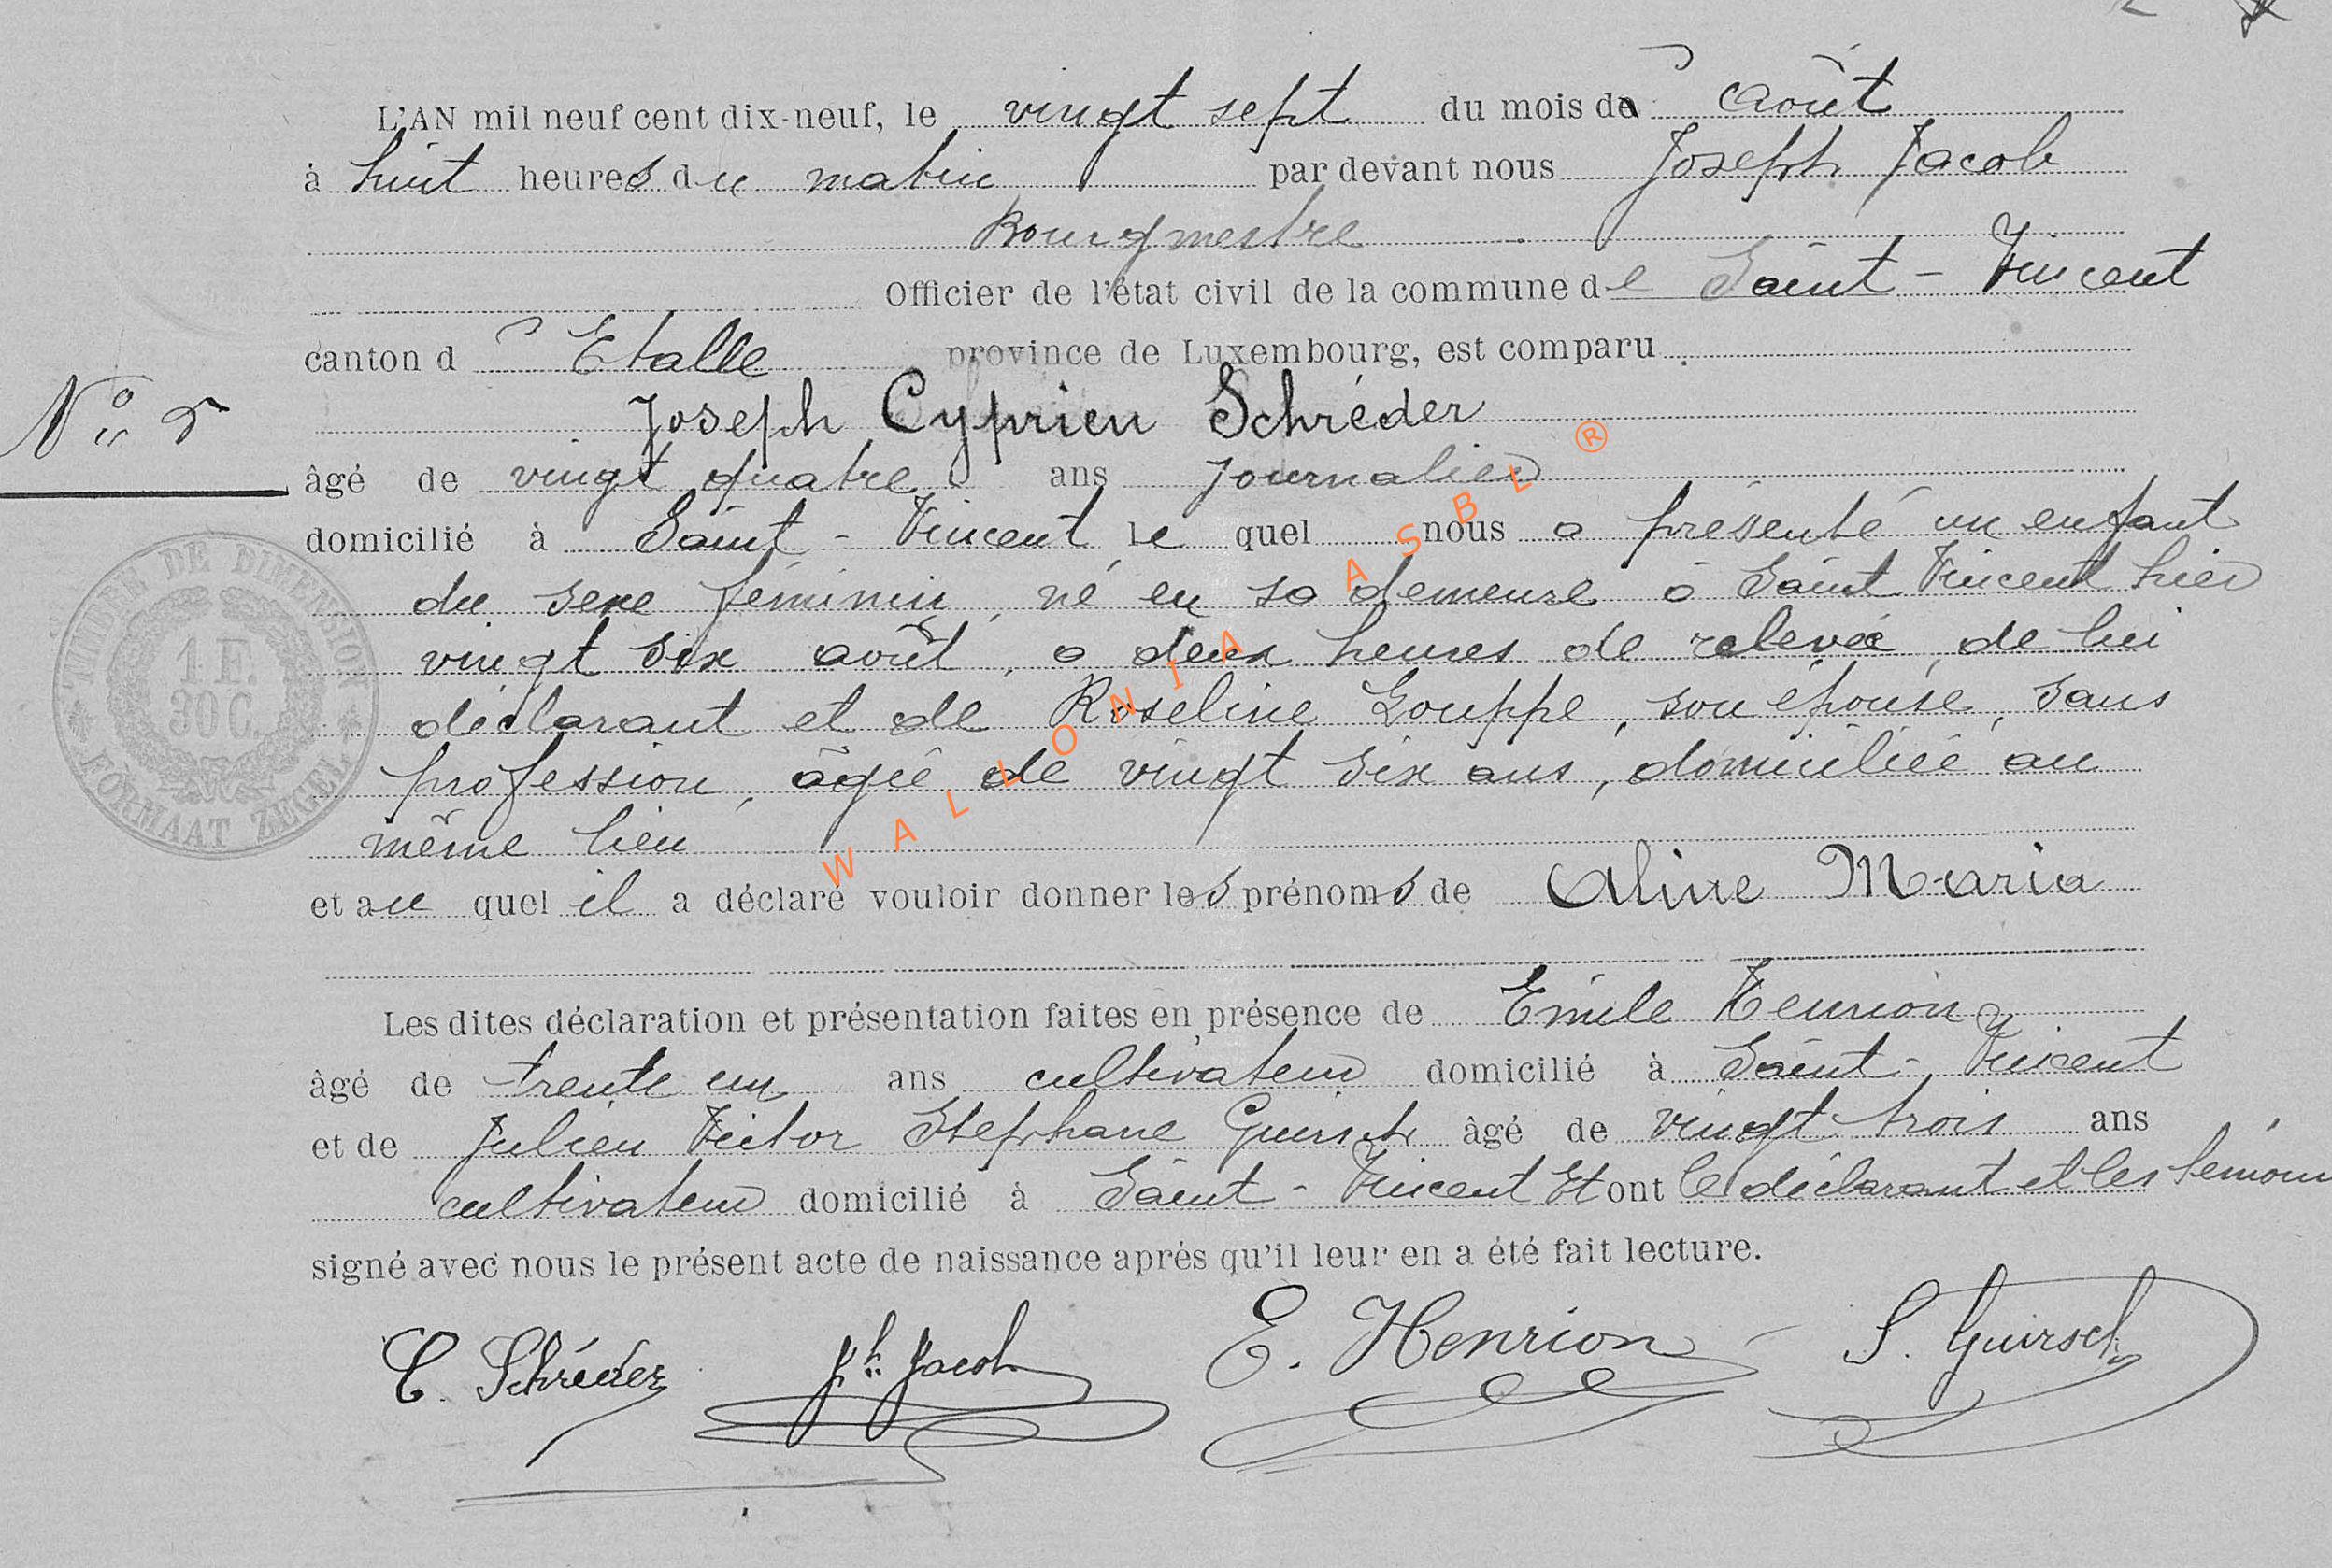 L'AN mil neuf cent dix-neuf, le vingt sept du mois d' août
à huit heures du matin par devant nous Joseph Jacob
Bourgmestre
Officier de l'état civil de la commune de Saint-Vincent
canton d'Etalle province de Luxembourg, est comparu
Joseph Cyprien Schréder
N° 5
âgé de vingt quatre ans journalier
domicilié à Saint-Vincent le quel nous a présenté un enfant
du sexe féminin, né en sa demeure à Saint Vincent hier
vingt six août, à deux heures de relevée, de lui
déclarant et de Roseline Gouppe, son épouse, sans
profession, âgée de vingt six ans, domiciliée au
même lieu
et au quel il a déclaré vouloir donner les prénoms de Aline Maria
Les dites déclaration et présentation faites en présence de Emile Henrion
âgé de trente un ans cultivateur domicilié à Saint-Vincent
et de Julien Victor Stephane Guirsch âgé de vingt trois ans
cultivateur domicilié à Saint-Vincent Et ont le déclarant et les témoins
signé avec nous le présent acte de naissance après qu'il leur en a été fait lecture.
C. Schréder Jh. Jacob E. Henrion S. Guirsch
TIMBRE DE DIMENSION
1 F.
30 C.
FORMAAT ZEGEL
WALLONIA ASBL ®